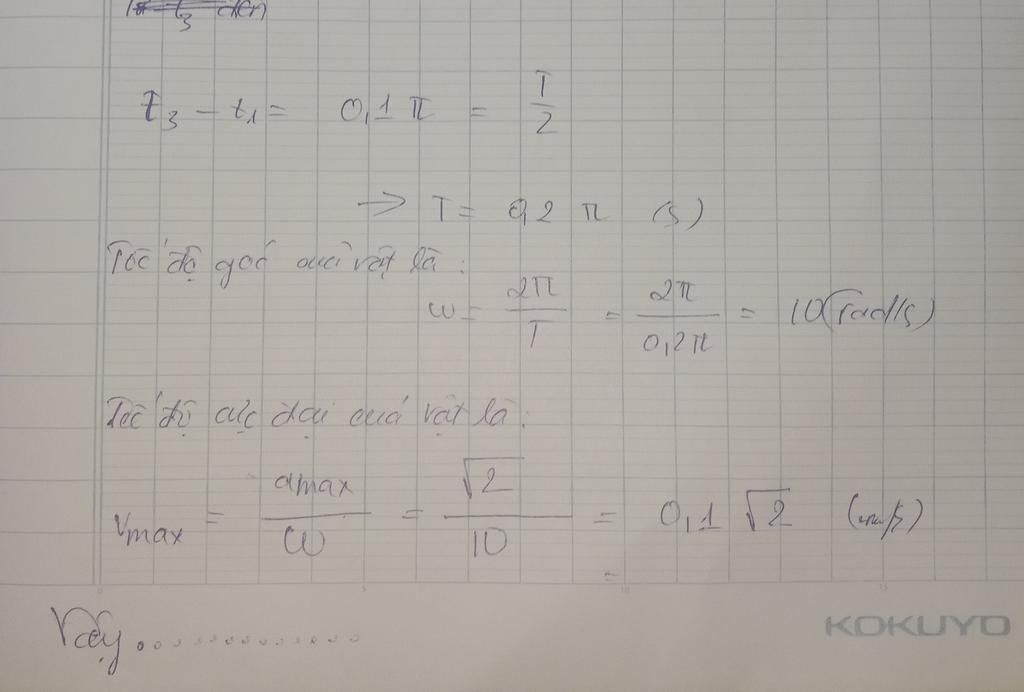 t3 đến
t₃ - t₁ = 0,1 π = T/2
→ T = 0,2 π (s)
Tốc độ góc của vật là:
ω = 2π/T = 2π/0,2π = 10 (rad/s)
Tốc độ cực đại của vật là:
vmax = amax/ω = √2/10 = 0,1 √2 (m/s)
=
Vậy..............
KOKUYO